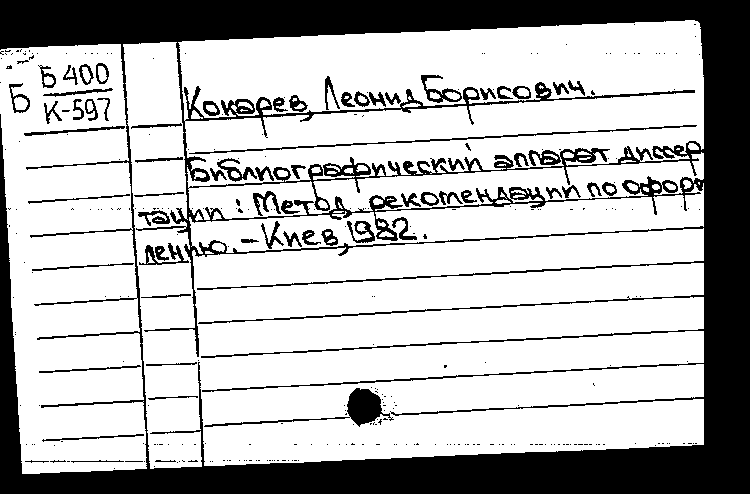 Б
Б 400
К-597
Кокарев, Леонид Борисович.
Библиографический аппарат диссер-
тации : Метод. рекомендации по оформ
лению. – Киев, 1982.